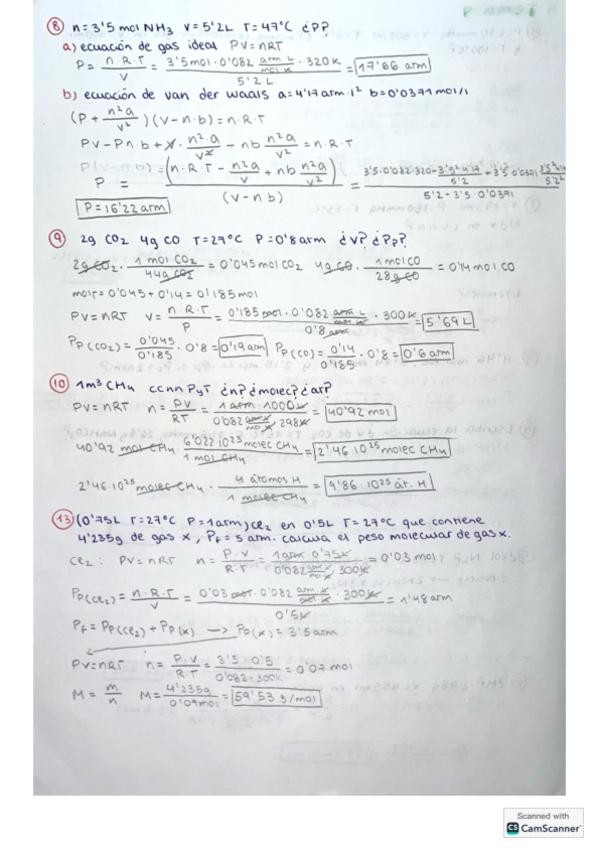 ⑧ n=3'5 mol NH3 V=5'2L T=47°C ¿P?
a) ecuación de gas ideal PV=nRT
P = n·R·T / V = 3'5mol·0'082 atm·L / mol·K · 320K / 5'2 L = 17'66 atm
b) ecuación de van der waals a=4'17atm·l² b=0'0371mol/l
(P + n²a / v²)(V-n·b)=n·R·T
PV-Pn·b + V· n²·a / V² - nb n²a / V² = n·R·T
P = (n·R·T - n²a / V + nb n²a / V²) / (V-nb) = 3'5·0'082·320 - 3'5²·4'17 / 5'2 + 3'5·0'0371 / 5'2-3'5·0'0371
P=16'22atm
⑨ 2g CO2 4g CO T=27°C P=0'8atm ¿V? ¿Pp?
2g CO2 · 1 mol CO2 / 44g CO2 = 0'045mol CO2 4g CO · 1 mol CO / 28g CO = 0'14 mol CO
molT=0'045+0'14=0'185mol
PV=nRT V= n·R·T / P = 0'185 mol·0'082 atm·L / mol·K · 300K / 0'8 atm = 5'69L
Pp(CO2)= 0'045 / 0'185 · 0'8=0'19atm Pp(CO)= 0'14 / 0'185 · 0'8=0'6atm
⑩ 1m³ CH4 ccnn PyT ¿n? ¿molec? ¿at?
PV=nRT n= PV / RT = 1 atm·1000L / 0'082 atm·L / mol·K 298K = 40'92 mol
40'92 mol CH4 6'022·10²³ molec CH4 / 1 mol CH4 = 2'46·10²⁵ molec CH4
2'46·10²⁵ molec CH4 · 4 átomos H / 1 molec CH4 = 9'86·10²⁵ át. H
⑬ (0'75L T=27°C P=1atm)Cl2 en 0'5L T=27°C que contiene
4'235g de gas x, PF=5 atm. calcula el peso molecular de gas x.
Cl2: PV=nRT n= P·V / R·T = 1 atm 0'75L / 0'082 atm·L / mol·K · 300K = 0'03 mol
Pp(Cl2)= n·R·T / V = 0'03 mol·0'082 atm·L / mol·K · 300K / 0'5L = 1'48atm
PF = Pp(Cl2)+Pp(x) → Pp(x)=3'5atm
PV=nRT n= P·V / R·T = 3'5·0'5 / 0'082·300K = 0'07 mol
M= m / n M= 4'235g / 0'07mol = 59'53 g/mol
Scanned with
CS CamScanner